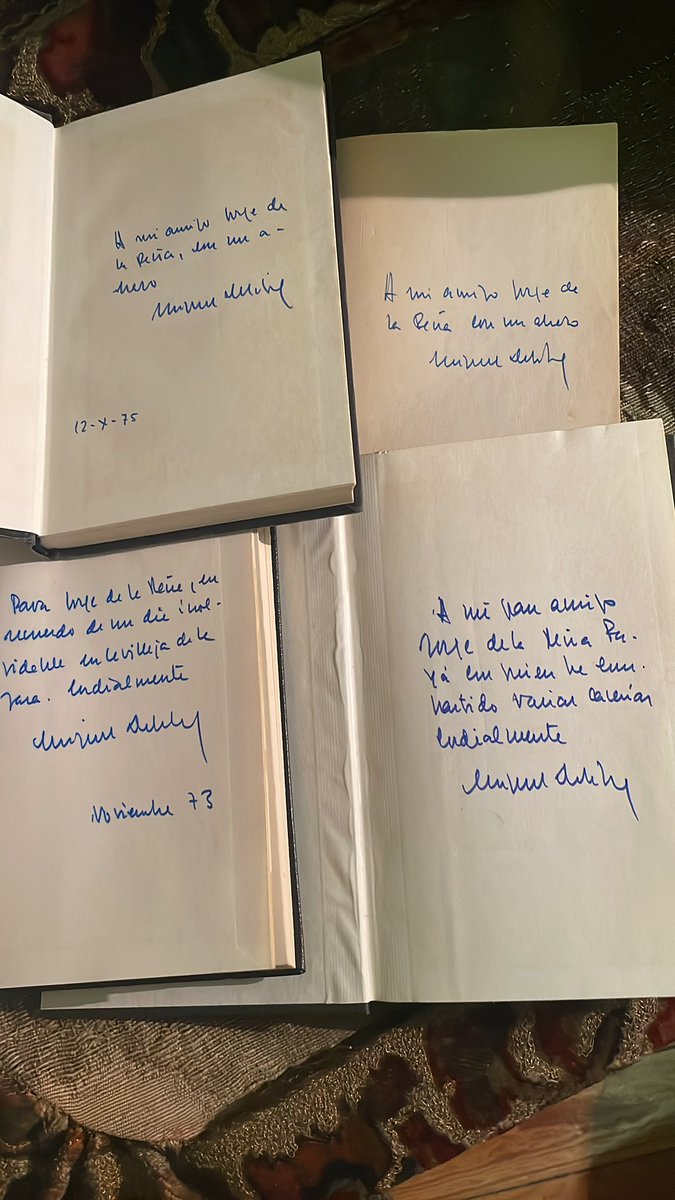 A mi amigo Jorge de
la Peña, con un a-
brazo
Miguel Delibes
12-X-75
A mi amigo Jorge de
la Peña con un abrazo
Miguel Delibes
Para Jorge de la Peña, en
recuerdo de un día inol-
vidable en la villeja de la
Jara. Cordialmente
Miguel Delibes
Noviembre 73
A mi gran amigo
Jorge de la Peña Pa-
yá con quien he com-
partido varias cacerías
Cordialmente
Miguel Delibes